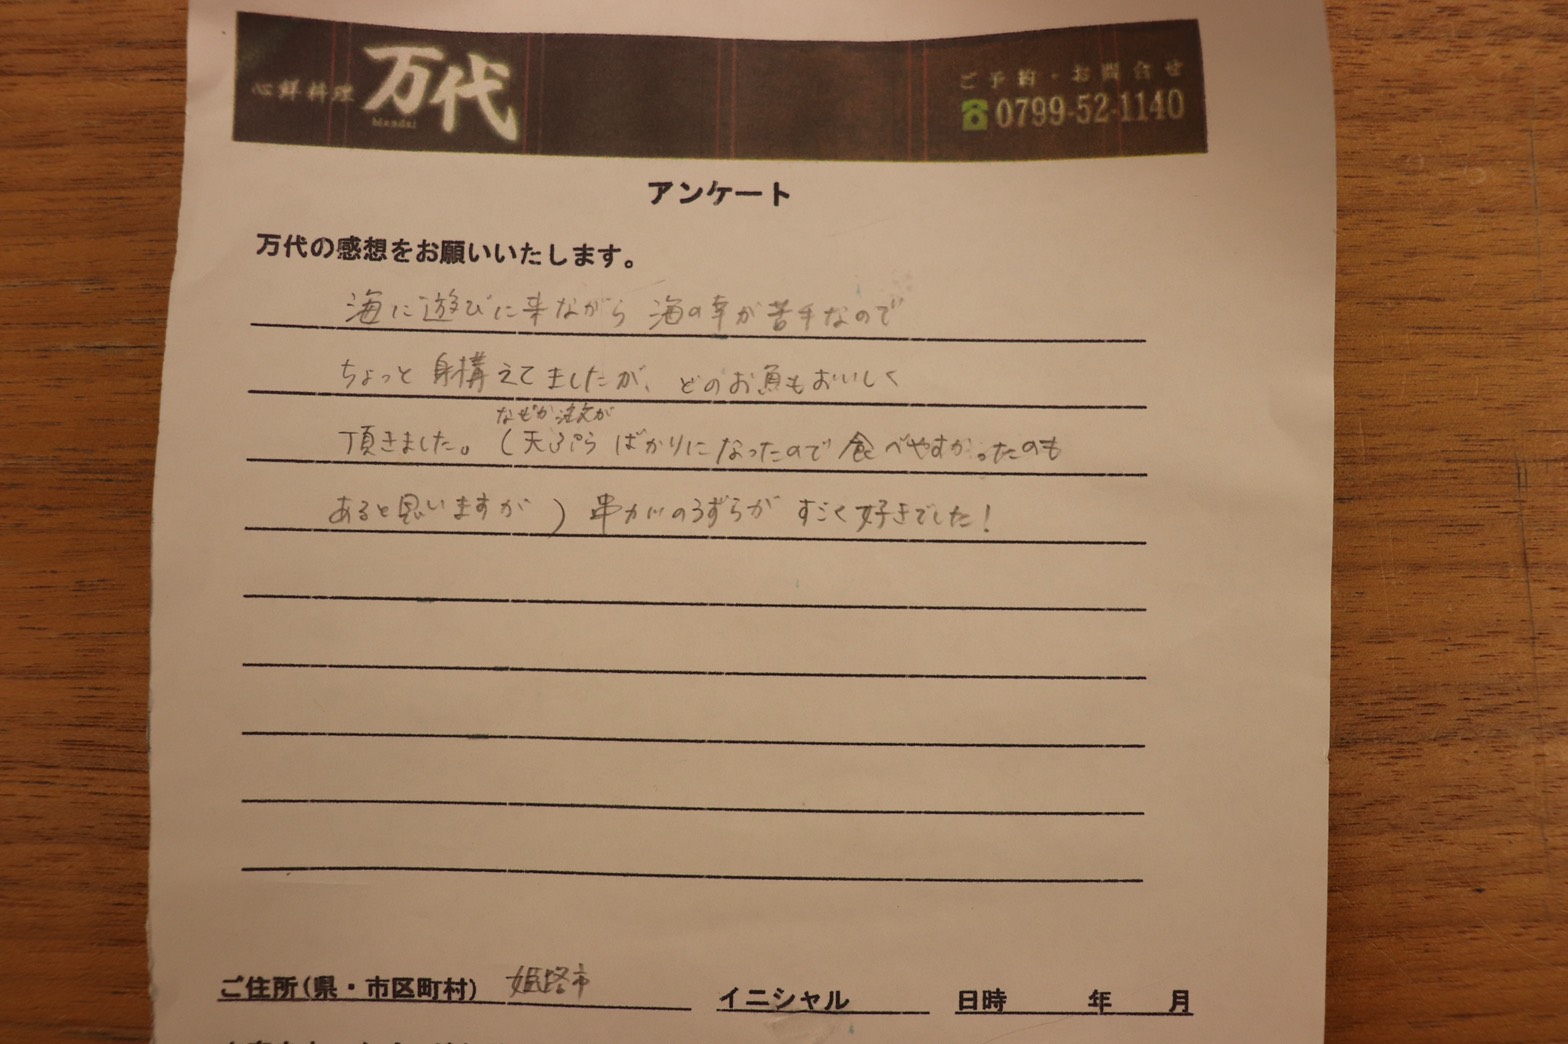 心鮮料理 万代
Mandai
ご予約・お問合せ
0799-52-1140
アンケート
万代の感想をお願いいたします。
海に遊びに来ながら 海の幸が苦手なので
ちょっと 身構えてましたが、どのお魚もおいしく
なぜか注文が
頂きました。(天ぷら ばかりになったので 食べやすかったのも
あると思いますが) 串カツのうずらが すごく好きでした!
ご住所(県・市区町村) 姫路市 イニシャル 日時 年 月